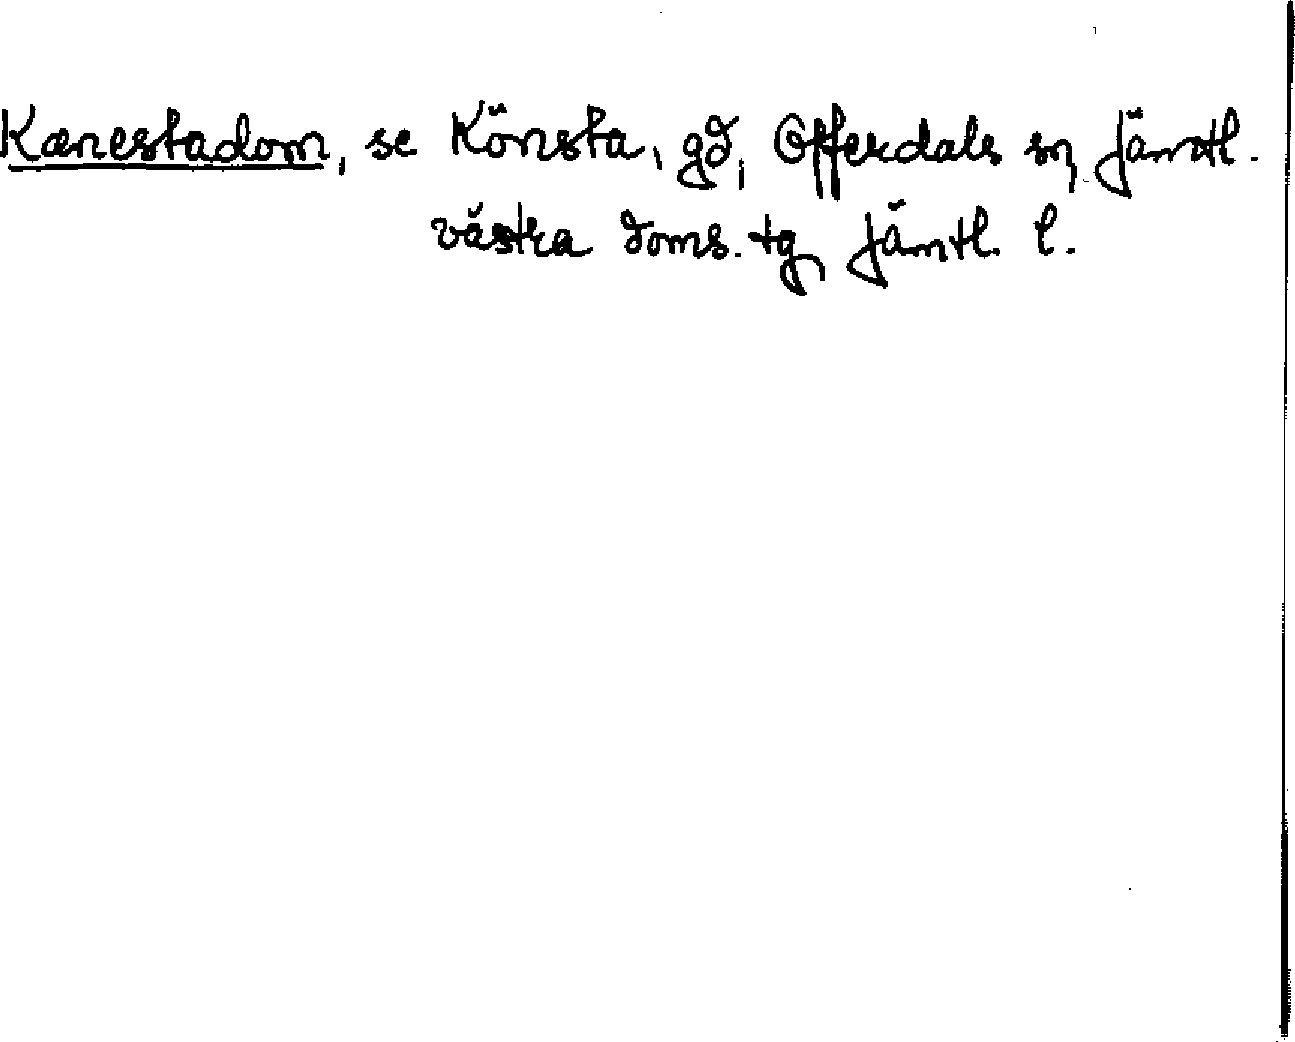 Kænestadom, se Könsta, gd, Offerdals sn, Jämtl.
västra doms. tg, Jämtl. l.